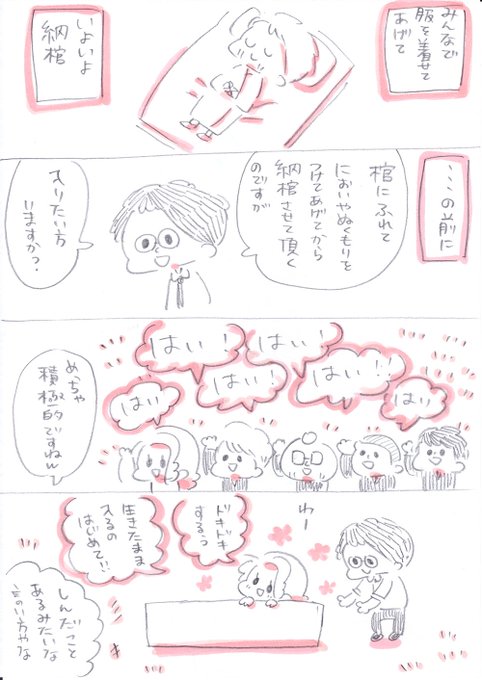 みんなで
服を着せて
あげて
いよいよ
納棺
この前に
棺にふれて
においやぬくもりを
つけてあげてから
納棺させて頂く
のですが
入りたい方
いますか?
はい
はい!!
はい!
はい!
はい!
はい
めっちゃ
積極的ですねw
わー
ドキドキ
するぅ
生きたまま
入るの
はじめて!!
しんだこと
あるみたいな
言い方やな